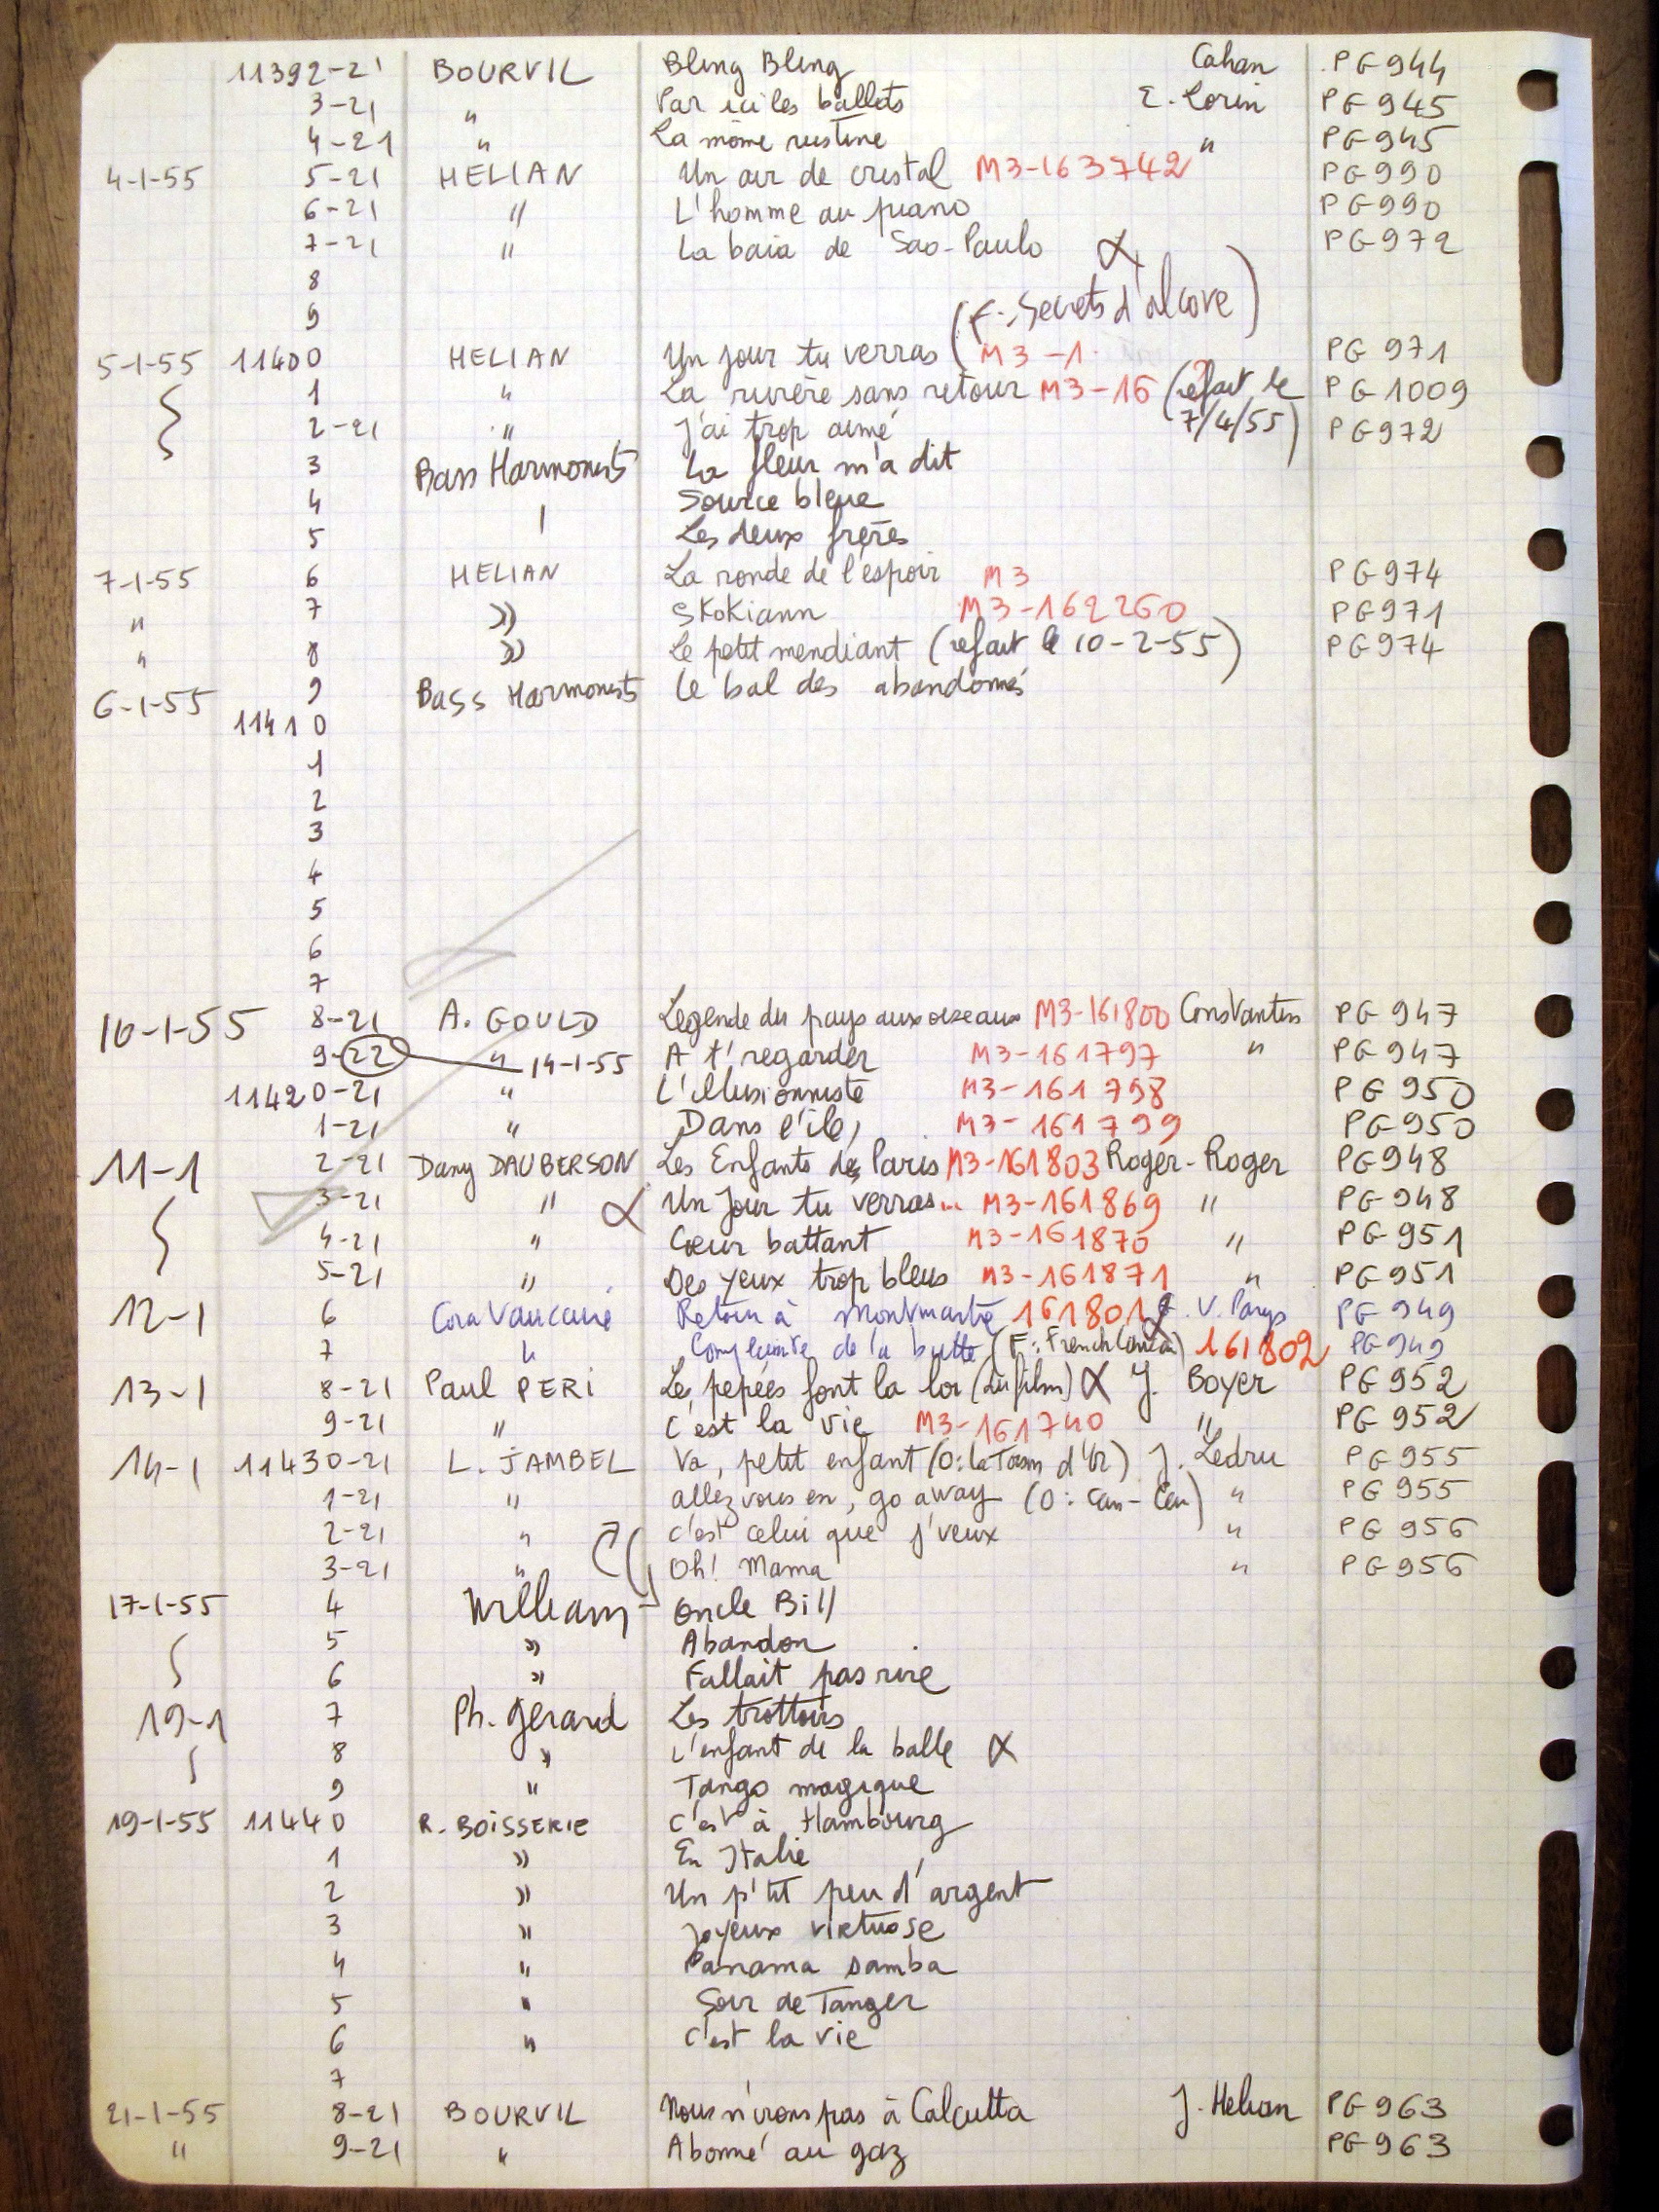 11392-21 BOURVIL Bling Bling Cahan PG 944
3-21 " Par ici les ballots E. Lorin PG 945
4-21 " La môme rustine " PG 945
4-1-55 5-21 HELIAN Un air de cristal M3-163742 PG 990
6-21 " L'homme au piano PG 990
7-21 " La baia de Sao-Paulo α PG 972
8
9 (F: Secrets d'alcove)
5-1-55 11400 HELIAN Un jour tu verras M3-1 PG 971
1 " La rivière sans retour M3-16 (refait le 7/4/55) PG 1009
2-21 " J'ai trop aimé PG 972
3 Bass Harmonists La fleur m'a dit
4 Source bleue
5 Les deux frères
7-1-55 6 HELIAN La ronde de l'espoir M3 PG 974
" 7 » Skokiann M3-162260 PG 971
" 8 » Le petit mendiant (refait le 10-2-55) PG 974
6-1-55 9 Bass Harmonists Le bal des abandonnés
11410
1
2
3
4
5
6
7
10-1-55 8-21 A. GOULD Légende du pays aux oiseaux M3-161800 Constantin PG 947
9-22 " 14-1-55 A t'regarder M3-161797 " PG 947
11420-21 " L'illusionniste M3-161798 PG 950
1-21 " Dans l'île, M3-161799 PG 950
11-1 2-21 Dany DAUBERSON Les Enfants de Paris M3-161803 Roger-Roger PG 948
3-21 " α Un jour tu verras... M3-161869 " PG 948
4-21 " Cœur battant M3-161870 " PG 951
5-21 " Des yeux trop bleus M3-161871 " PG 951
12-1 6 Cora Vaucaire Retour à Montmartre 161801 G. V. Parys PG 949
7 " Complainte de la butte (F: French Cancan) 161802 PG 949
13-1 8-21 Paul PERI Les pépées font la loi (du film) α J. Boyer PG 952
9-21 " C'est la vie M3-161740 " PG 952
14-1 11430-21 L. JAMBEL Va, petit enfant (O: la Toison d'Or) J. Ledru PG 955
1-21 " allez vous en, go away (O: Can-Can) " PG 955
2-21 " c'est celui que j'veux " PG 956
3-21 " Oh! Mama " PG 956
17-1-55 4 William Oncle Bill
5 » Abandon
6 » Fallait pas rire
19-1 7 Ph. Gerard Les trottoirs
8 » L'enfant de la balle α
9 " Tango magique
19-1-55 11440 R. BOISSERIE C'est à Hambourg
1 » En Italie
2 » Un p'tit peu d'argent
3 » Joyeux virtuose
4 " Panama samba
5 " Soir de Tanger
6 " C'est la vie
7
21-1-55 8-21 BOURVIL Nous n'irons pas à Calcutta J. Helian PG 963
" 9-21 " Abonné au gaz PG 963